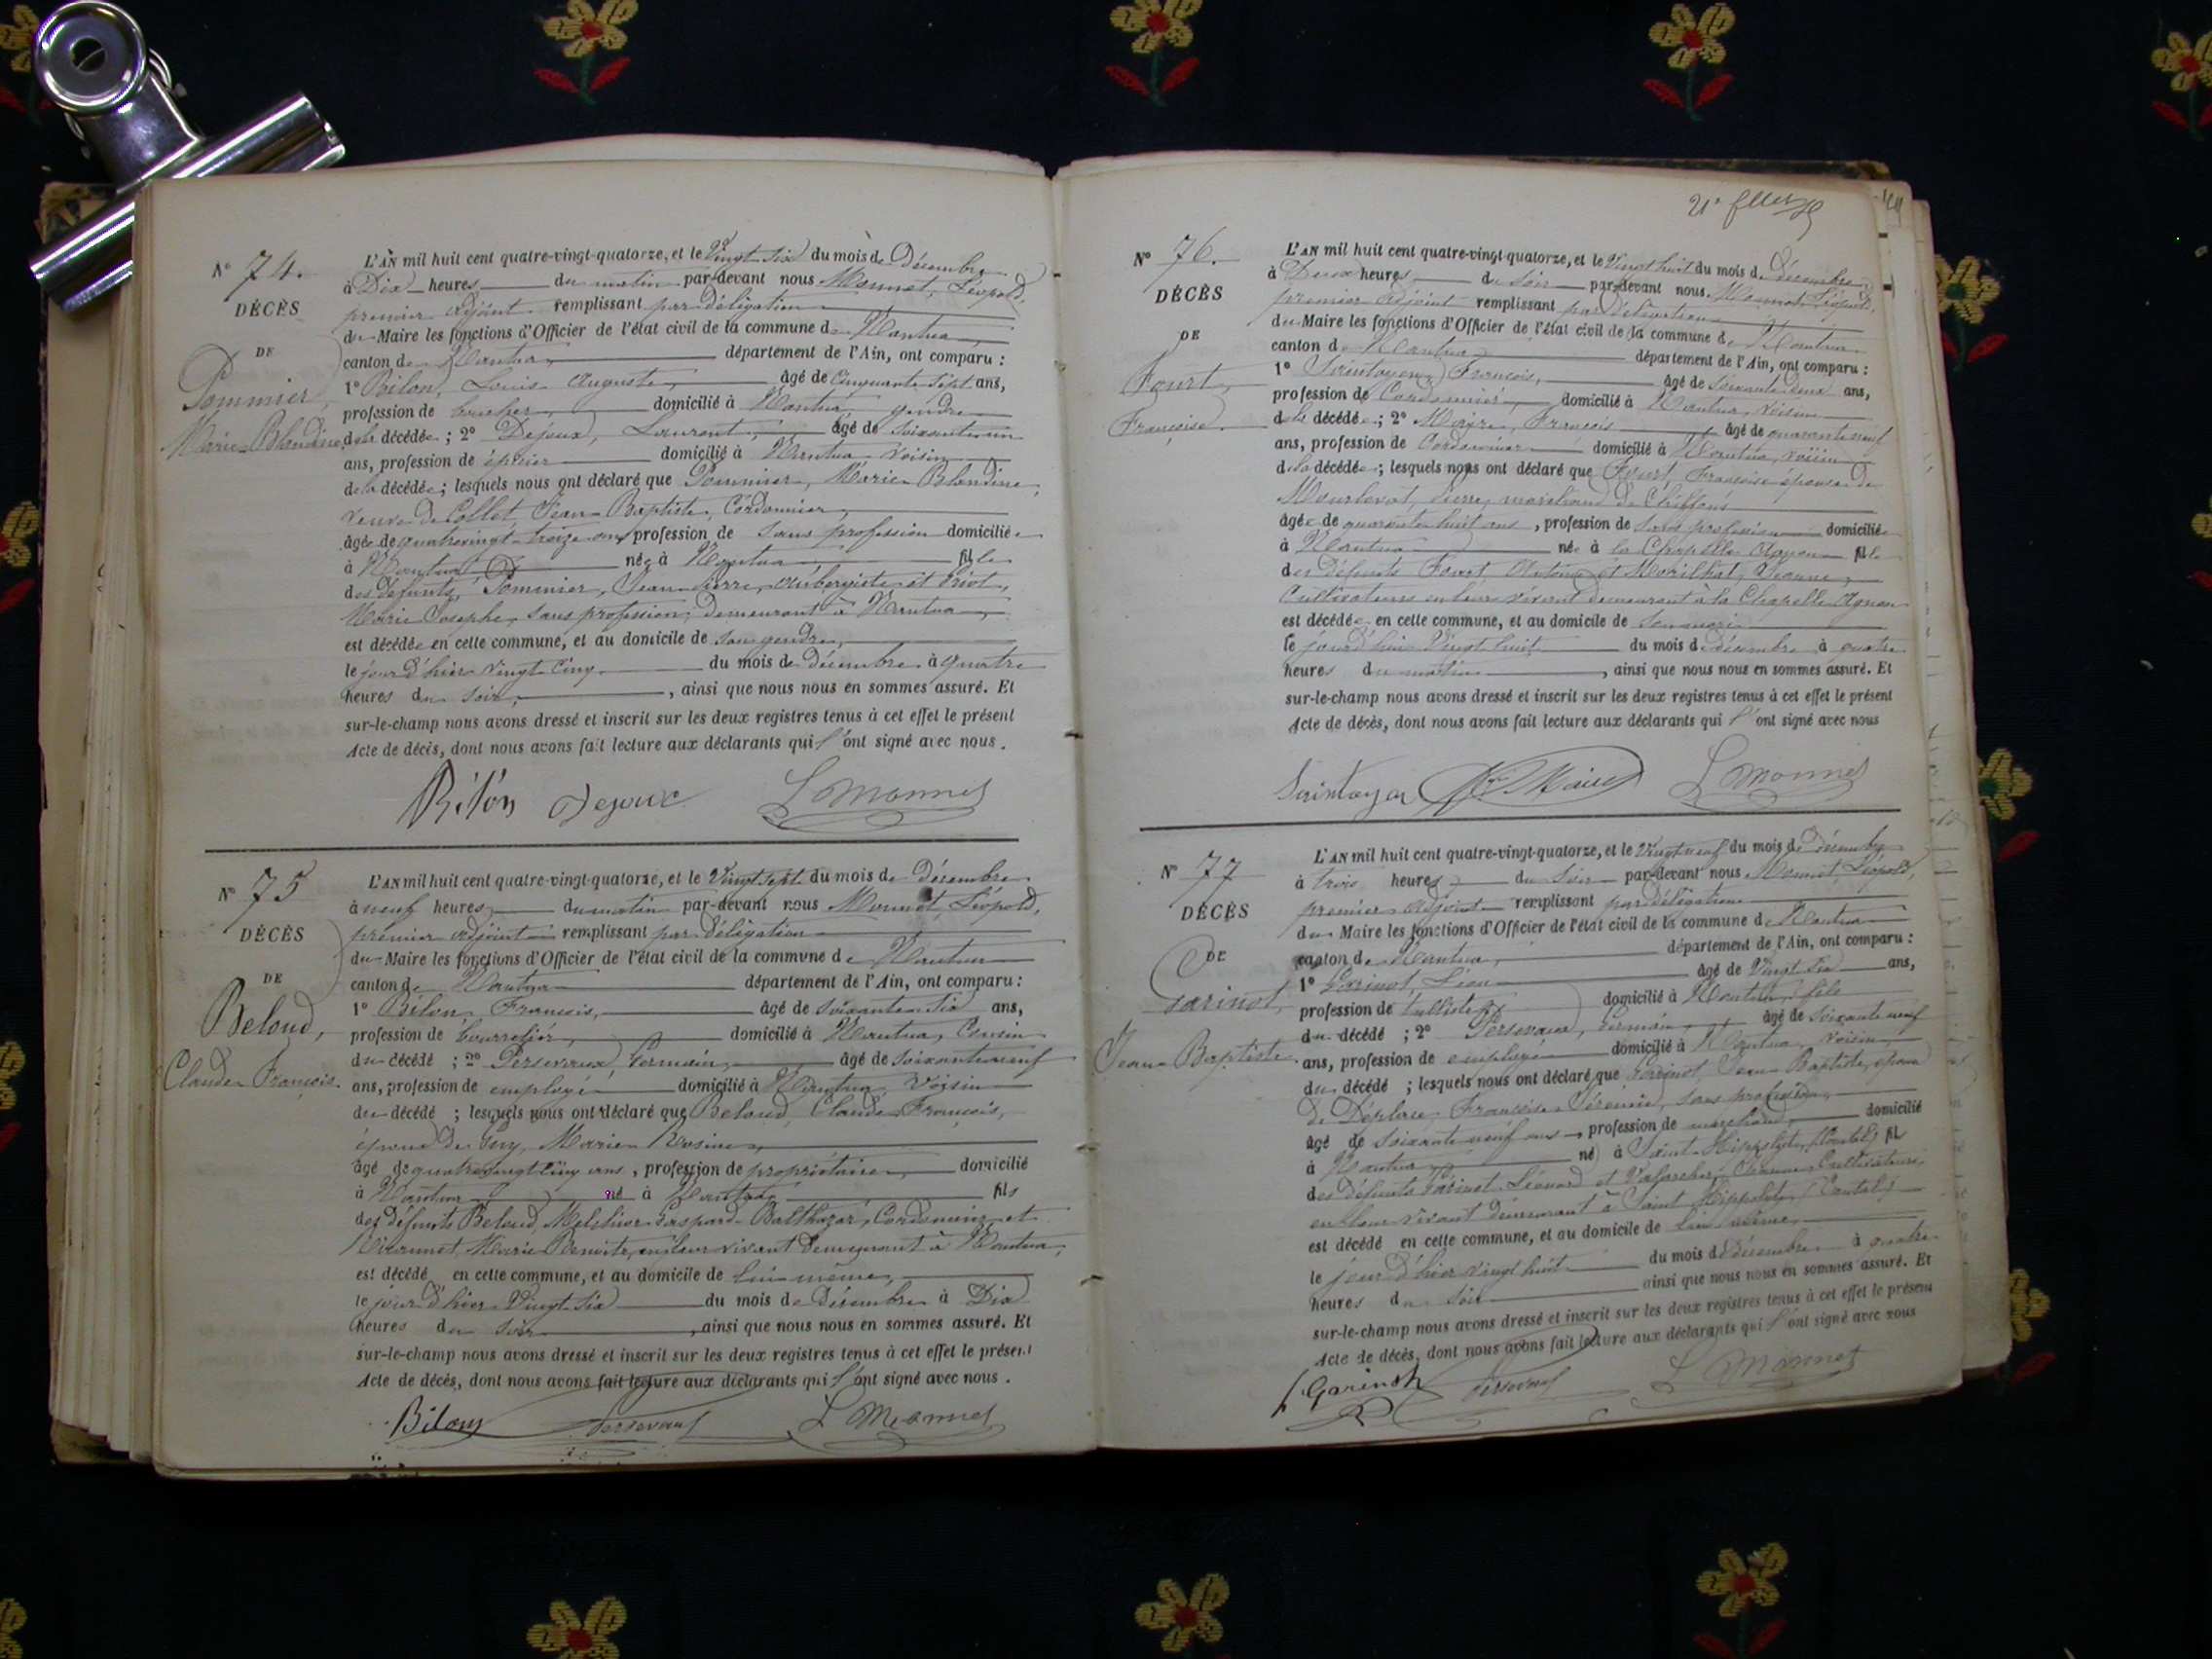 N° 74.
DÉCÈS
DE
Pommier,
Marie Blandine
L'AN mil huit cent quatre-vingt-quatorze, et le Vingt Six du mois de Décembre
à Dix heures du matin par-devant nous Monnet, Léopold,
premier adjoint remplissant par délégation
du Maire les fonctions d'Officier de l'état civil de la commune de Nantua
canton de Nantua département de l'Ain, ont comparu :
1° Bilon, Louis Auguste, âgé de Cinquante Sept ans,
profession de boucher, domicilié à Nantua, gendre
de la décédée ; 2° Dejoux, Laurent, âgé de Soixante un
ans, profession de épicier domicilié à Nantua Voisin
de la décédée ; lesquels nous ont déclaré que Pommier, Marie Blandine,
veuve de Collet, Jean Baptiste, Cordonnier,
âgée de quatrevingt-treize ans profession de Sans profession domiciliée
à Nantua née à Nantua fille
des défunts Pommier, Jean Pierre, aubergiste et
Marie Josephe, Sans profession, demeurant à Nantua
est décédée en cette commune, et au domicile de son gendre,
le jour d'hier vingt-cinq du mois de décembre à quatre
heures du Soir, , ainsi que nous nous en sommes assuré. Et
sur-le-champ nous avons dressé et inscrit sur les deux registres tenus à cet effet le présent
Acte de décès, dont nous avons fait lecture aux déclarants qui l'ont signé avec nous.
Bilon Dejoux L Monnet
N° 75
DÉCÈS
DE
Beloud,
Claude François.
L'AN mil huit cent quatre-vingt-quatorze, et le Vingt sept du mois de Décembre
à neuf heures du matin par-devant nous Monnet, Léopold,
premier adjoint remplissant par délégation
du Maire les fonctions d'Officier de l'état civil de la commune de Nantua
canton de Nantua département de l'Ain, ont comparu :
1° Bilon, François, âgé de Soixante Six ans,
profession de bourrelier, domicilié à Nantua, Cousin
du décédé ; 2° Persevaux, Germain, âgé de Soixante neuf
ans, profession de employé domicilié à Nantua, Voisin
du décédé ; lesquels nous ont déclaré que Beloud, Claude François,
époux de Guy, Marie Rosine,
âgé de quatrevingt cinq ans, profession de propriétaire, domicilié
à Nantua né à Nantua fils
des défunts Beloud, Melchior Gaspard Balthazar, Cordonnier et
Marie Benoite, en leur vivant demeurant à Nantua,
est décédé en cette commune, et au domicile de lui-même,
le jour d'hier Vingt-Six du mois de Décembre à Dix
heures du Soir , ainsi que nous nous en sommes assuré. Et
sur-le-champ nous avons dressé et inscrit sur les deux registres tenus à cet effet le présent
Acte de décès, dont nous avons fait lecture aux déclarants qui l'ont signé avec nous.
Bilon Persevaux L Monnet
N° 76.
DÉCÈS
DE
Fourt,
Françoise.
L'AN mil huit cent quatre-vingt-quatorze, et le Vingt huit du mois de Décembre
à Deux heures du Soir par-devant nous Monnet, Léopold,
premier adjoint remplissant par délégation
du Maire les fonctions d'Officier de l'état civil de la commune de Nantua
canton de Nantua département de l'Ain, ont comparu :
1° Saintoyen, François, âgé de Soixante deux ans,
profession de Cordonnier, domicilié à Nantua, Voisin
de la décédée ; 2° Maire, François âgé de quarante neuf
ans, profession de Cordonnier domicilié à Nantua, voisin
de la décédée ; lesquels nous ont déclaré que Fourt Françoise épouse de
Mourlevat, Pierre, marchand de Chiffons
âgée de quarante huit ans, profession de Sans profession domiciliée
à Nantua née à la Chapelle Agnon fille
des défunts Fourt, Antoine et Jeanne,
Cultivateurs en leur vivant demeurant à la Chapelle Agnon
est décédée en cette commune, et au domicile de Son mari
le jourd'hui Vingt huit du mois de décembre à quatre
heures du matin , ainsi que nous nous en sommes assuré. Et
sur-le-champ nous avons dressé et inscrit sur les deux registres tenus à cet effet le présent
Acte de décès, dont nous avons fait lecture aux déclarants qui l'ont signé avec nous
Saintoyen Maire L Monnet
N° 77
DÉCÈS
DE
Garinot,
Jean Baptiste.
L'AN mil huit cent quatre-vingt-quatorze, et le Vingt neuf du mois de décembre
à trois heures du Soir par-devant nous Monnet, Léopold,
premier adjoint remplissant par délégation
du Maire les fonctions d'Officier de l'état civil de la commune de Nantua
canton de Nantua, département de l'Ain, ont comparu :
1° Garinot, Léon âgé de Vingt Six ans,
profession de tulliste domicilié à Nantua, fils
du décédé ; 2° Persevaux, Germain, âgé de Soixante neuf
ans, profession de employé domicilié à Nantua, Voisin
du décédé ; lesquels nous ont déclaré que Garinot, Jean Baptiste, époux
de Deplace, Françoise Sans profession,
âgé de Soixante neuf ans, profession de marchand, domicilié
à Nantua né à Saint-Hippolyte, (Cantal) fils
des défunts Garinot Léonard et Jeanne, Cultivateurs,
en leur vivant demeurant à Saint Hippolyte, (Cantal)
est décédé en cette commune, et au domicile de lui même
le jour d'hier vingt huit du mois de décembre à quatre
heures du Soir ainsi que nous nous en sommes assuré. Et
sur-le-champ nous avons dressé et inscrit sur les deux registres tenus à cet effet le présent
Acte de décès, dont nous avons fait lecture aux déclarants qui l'ont signé avec nous
Garinot Persevaux L Monnet